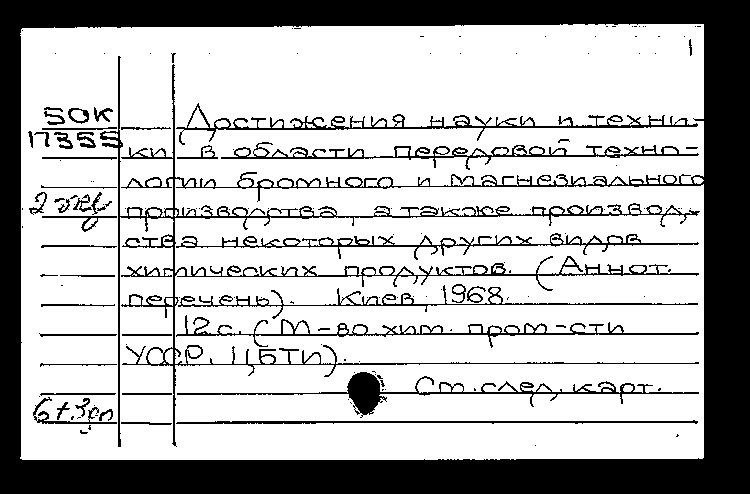 1
50К
17355
Достижения науки и техни-
ки в области передовой техно-
логии бромного и магнезиального
2 экз
производства, а также производ-
ства некоторых других видов
химических продуктов. (Аннот.
перечень). Киев, 1968.
12 с. (М-во хим. пром-сти
УССР. ЦБТИ).
См. след. карт.